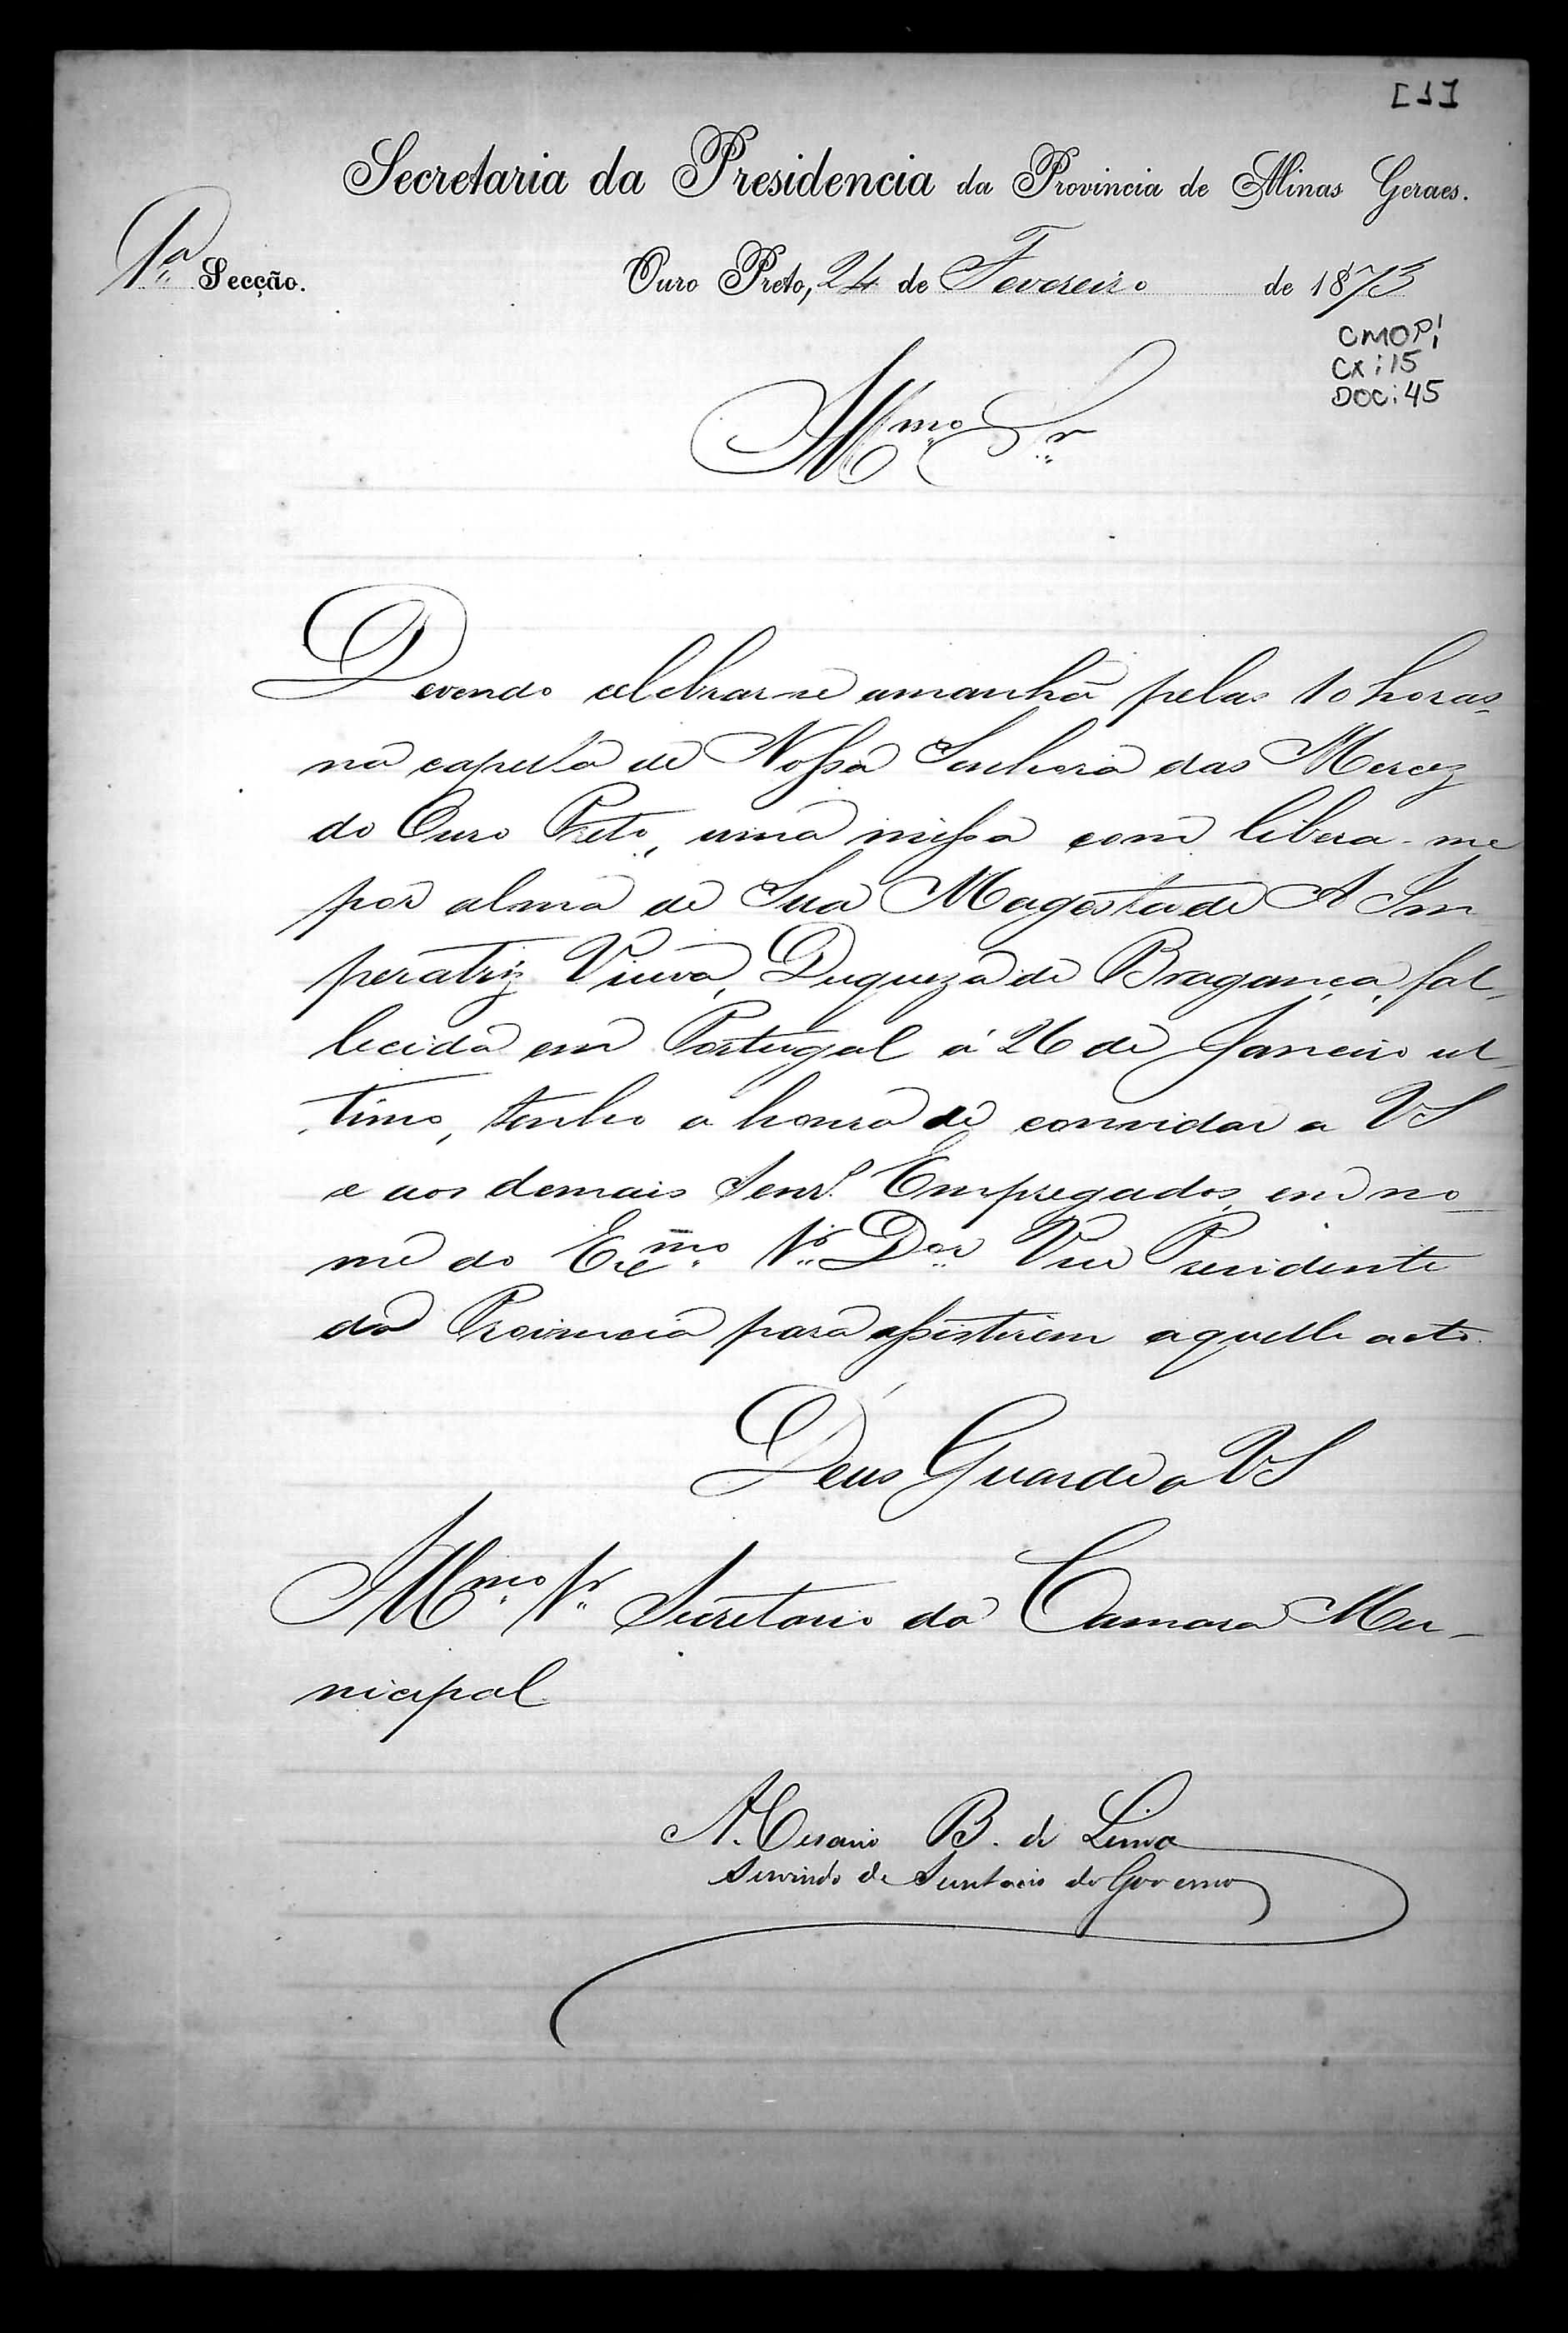 [1]
Secretaria da Presidencia da Provincia de Minas Geraes.
1ª Secção.
Ouro Preto, 24 de Fevereiro de 1873
CMOP:
CX: 15
DOC: 45
Illmo Sr
Devendo celebrar-se amanhã pelas 10 horas
na capella de Nossa Senhora das Mercez
do Ouro Preto, uma missa com libera-me
por alma de Sua Magestade A Im
peratriz Viuva, Duqueza de Bragança, fal-
lecida em Portugal á 26 de Janeiro ul-
timo, tenho a honra de convidar a VS
e aos demais Senrs. Empregados, em no-
me do Exmo. Sr. Dor. Vice Presidente
da Provincia para assistirem aquelle acto.
Deus Guarde a VS
Illmo. Sr. Secretario da Camara Mu-
nicipal.
A. Cesario B. de Lima
servindo de Secretario do Governo